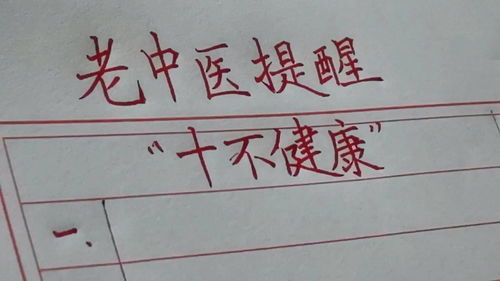 老中医提醒
“十不健康”
一.